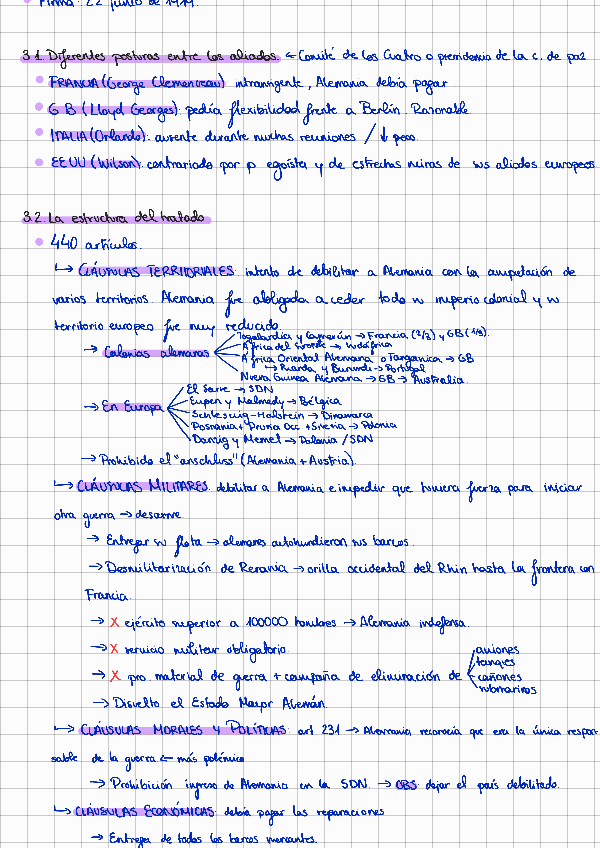 Firma: 22 junio de 1919.
3.1. Diferentes posturas entre los aliados. ← Comité de los Cuatro o presidencia de la c. de paz
• FRANCIA (George Clemenceau) intransigente, Alemania debía pagar
• G B (Lloyd Georges): pedía flexibilidad frente a Berlín. Razonable
• ITALIA (Orlando): ausente durante muchas reuniones / ↓ peso.
• EEUU (Wilson): contrariado por p egoísta y de estrechas miras de sus aliados europeos.
3.2. La estructura del tratado
• 440 artículos.
↳ CLÁUSULAS TERRITORIALES: intento de debilitar a Alemania con la amputación de
varios territorios. Alemania fue obligada a ceder todo su imperio colonial y su
territorio europeo fue muy reducido.
→ Colonias alemanas
Togolandia y Camerún → Francia (2/3) y GB (1/3).
África del Suroeste → Sudáfrica
África Oriental Alemana o Tanganica → GB
↳ Ruanda y Burundi → Portugal
Nueva Guinea Alemana → GB → Australia.
→ En Europa
El Sarre → SDN
Eupen y Malmedy → Bélgica
Schleswig-Holstein → Dinamarca
Posnania + Prusia Occ + Silesia → Polonia
Danzig y Memel → Polonia / SDN
→ Prohibido el "anschluss" (Alemania + Austria).
↳ CLÁUSULAS MILITARES: debilitar a Alemania e impedir que tuviera fuerza para iniciar
otra guerra → desarme
→ Entregar su flota → alemanes autohundieron sus barcos.
→ Desmilitarización de Renania → orilla occidental del Rhin hasta la frontera con
Francia.
→ X ejército superior a 100000 hombres → Alemania indefensa.
→ X servicio militar obligatorio
→ X pro. material de guerra + campaña de eliminación de
aviones
tanques
cañones
submarinos
→ Disuelto el Estado Mayor Alemán.
↳ CLÁUSULAS MORALES Y POLÍTICAS: art 231 → Alemania reconocía que era la única respon-
sable de la guerra ← más polémica
→ Prohibición ingreso de Alemania en la SDN. → OBJ: dejar el país debilitado.
↳ CLÁUSULAS ECONÓMICAS: debía pagar las reparaciones
→ Entrega de todos los barcos mercantes.